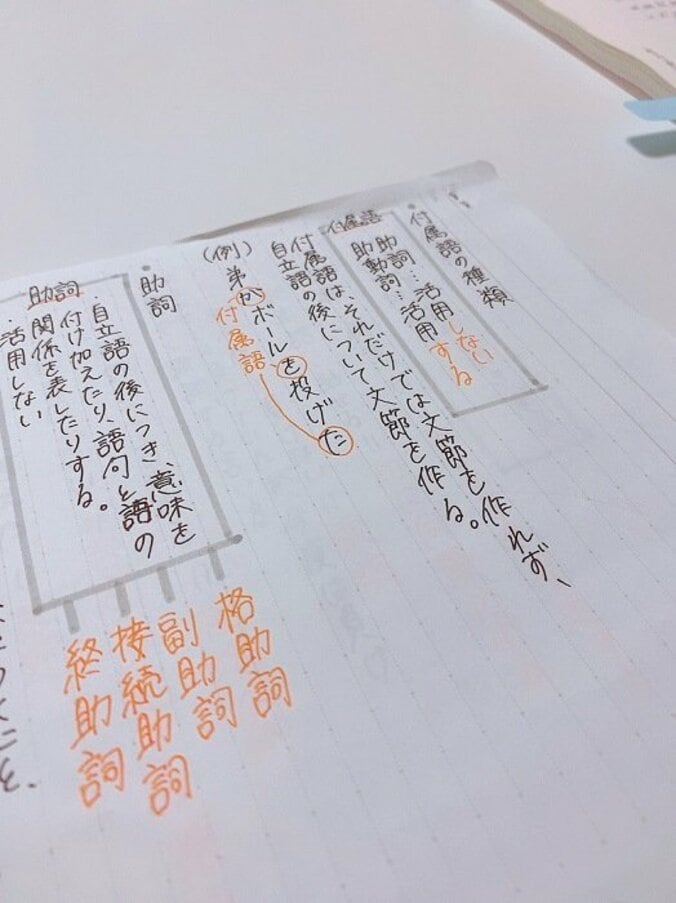 付属語の種類
助詞…活用しない
助動詞…活用する
付属語
付属語は、それだけでは文節を作れず、
自立語の後について文節を作る。
(例)弟がボールを投げた
付属語
助詞
自立語の後につき、意味を
付け加えたり、語句と語の
関係を表したりする。
・活用しない
助詞
格助詞
副助詞
接続助詞
終助詞